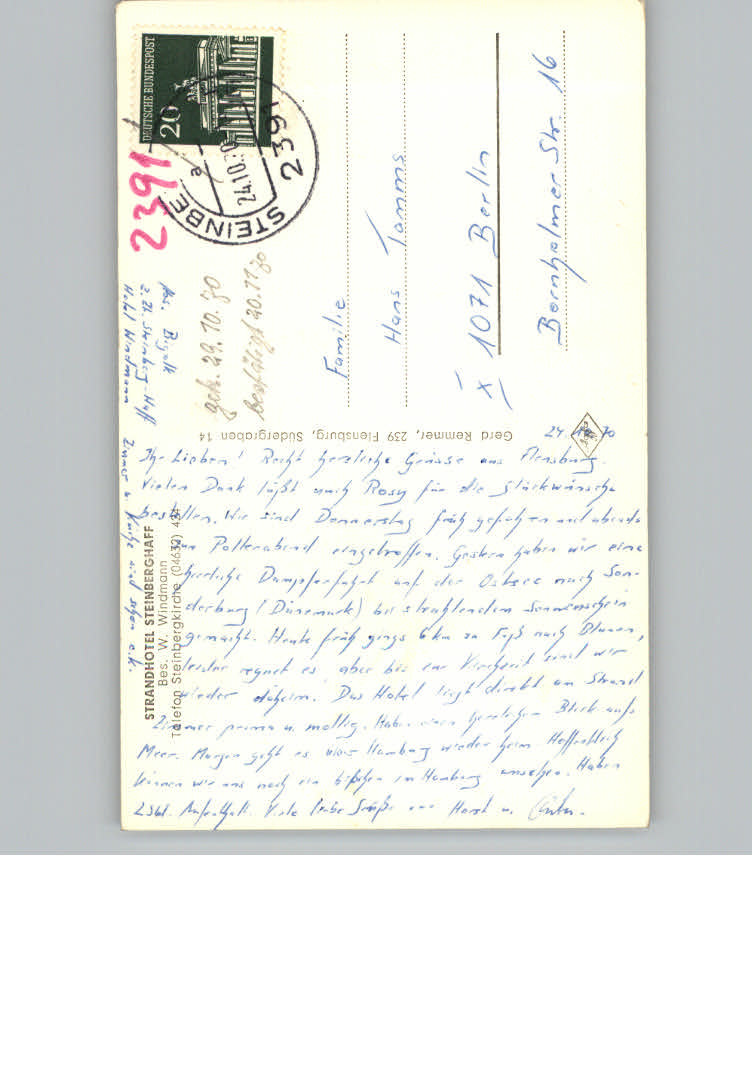 24. 10. 70
Ihr Lieben! Recht herzliche Grüsse aus Flensburg.
Vielen Dank läßt auch Rosy für die Glückwünsche
bestellen. Wir sind Donnerstag früh gefahren und abends
zum Polterabend eingetroffen. Gestern haben wir eine
herrliche Dampferfahrt auf der Ostsee nach Son-
derburg (Dänemark) bei strahlendem Sonnenschein
gemacht. Heute früh gings 6 km zu Fuß nach
leider regnet es, aber bis zur sind wir
wieder daheim. Das Hotel liegt direkt am Strand
Zimmer prima u. mollig. Haben einen herrlichen Blick aufs
Meer. Morgen geht es über Hamburg wieder heim. Hoffentlich
können wir uns noch ein bißchen in Hamburg ansehen. Haben
2 Std. Aufenthalt. Viele liebe Grüße von Horst u.
Hotel Windmann Zimmer u. Küche sind schön o.k.
2.Zt. Steinberg-Haff
STRANDHOTEL STEINBERGHAFF
Bes. W. Windmann
Telefon Steinbergkirche (04632) 434
Gerd Remmer, 239 Flensburg, Südergraben 14
2391
DEUTSCHE BUNDESPOST
20
STEINBE
2391
a
24.10.70
gek. 29. 10. 70
bestätigt 20. 11. 70
Familie
Hans Tamms
X 1071 Berlin
Bornholmer Str. 16